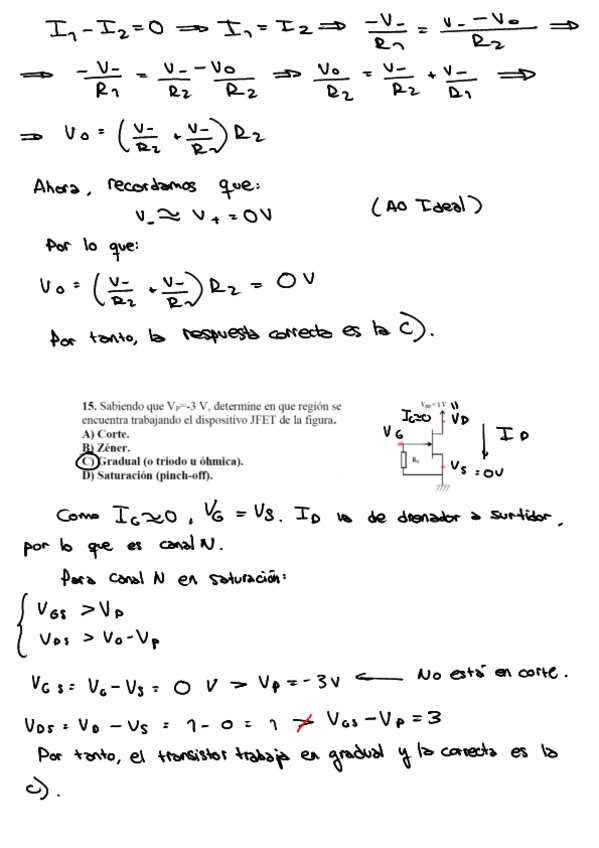 I₁ - I₂ = 0 ⇒ I₁ = I₂ ⇒ -V₋/R₁ = (V₋ - V₀)/R₂ ⇒
⇒ -V₋/R₁ = V₋/R₂ - V₀/R₂ ⇒ V₀/R₂ = V₋/R₂ + V₋/R₁ ⇒
⇒ V₀ = (V₋/R₂ + V₋/R₁) R₂
Ahora, recordamos que:
V₋ ≈ V₊ = 0V (AO Ideal)
Por lo que:
V₀ = (V₋/R₂ + V₋/R₁) R₂ = 0V
Por tanto, la respuesta correcta es la C).
15. Sabiendo que Vp=-3 V, determine en que región se
encuentra trabajando el dispositivo JFET de la figura.
A) Corte.
B) Zéner.
C) Gradual (o triodo u óhmica).
D) Saturación (pinch-off).
IG≈0
VD
VG
ID
VS = 0V
Como IG≈0, VG = VS. ID va de drenador a surtidor,
por lo que es canal N.
Para canal N en saturación:
VGS > VP
VDS > VO - VP
VGS = VG - VS = 0 V > VP = -3V ← No está en corte.
VDS = VD - VS = 1 - 0 = 1 ≯ VGS - VP = 3
Por tanto, el transistor trabaja en gradual y la correcta es la
C).